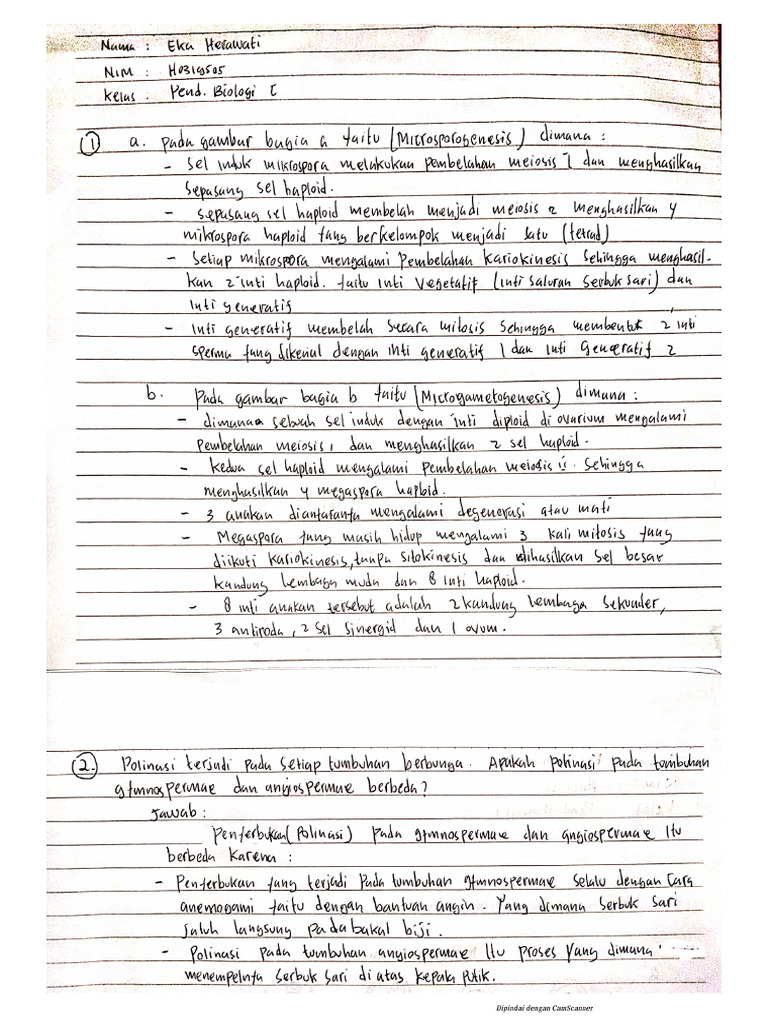 Nama : Eka Herawati
NIM : H0319505
Kelas : Pend. Biologi C
① a. pada gambar bagia a yaitu (Microsporogenesis) dimana :
- Sel induk mikrospora melakukan pembelahan meiosis 1 dan menghasilkan
sepasang sel haploid.
- sepasang sel haploid membelah menjadi meiosis 2 menghasilkan 4
mikrospora haploid yang berkelompok menjadi satu (tetrad)
- Setiap mikrospora mengalami pembelahan kariokinesis sehingga menghasil-
kan 2 inti haploid. yaitu inti vegetatif (inti saluran serbuk sari) dan
inti generatif
- Inti generatif membelah secara mitosis sehingga membentuk 2 inti
sperma yang dikenal dengan inti generatif 1 dan inti Generatif 2
b. Pada gambar bagia b yaitu (Microgametogenesis) dimana :
- dimana sebuah sel induk dengan inti diploid di ovarium mengalami
pembelahan meiosis 1 dan menghasilkan 2 sel haploid.
- kedua sel haploid mengalami pembelahan meiosis ii. Sehingga
menghasilkan 4 megaspora haploid.
- 3 anakan diantaranya mengalami degenerasi atau mati
- Megaspora yang masih hidup mengalami 3 kali mitosis yang
diikuti kariokinesis, tanpa sitokinesis dan dihasilkan sel besar
kandung lembaga muda dan 8 inti haploid.
- 8 inti anakan tersebut adalah 2 kandung lembaga sekunder,
3 antipoda, 2 sel sinergid dan 1 ovum.
② Polinasi terjadi pada setiap tumbuhan berbunga. Apakah polinasi pada tumbuhan
gymnospermae dan angiospermae berbeda?
Jawab :
Penyerbukan (Polinasi) pada gymnospermae dan angiospermae itu
berbeda karena :
- Penyerbukan yang terjadi pada tumbuhan gymnospermae selalu dengan cara
anemogami yaitu dengan bantuan angin. Yang dimana serbuk sari
jatuh langsung pada bakal biji.
- Polinasi pada tumbuhan angiospermae itu proses yang dimana
menempelnya serbuk sari di atas kepala putik.
Dipindai dengan CamScanner